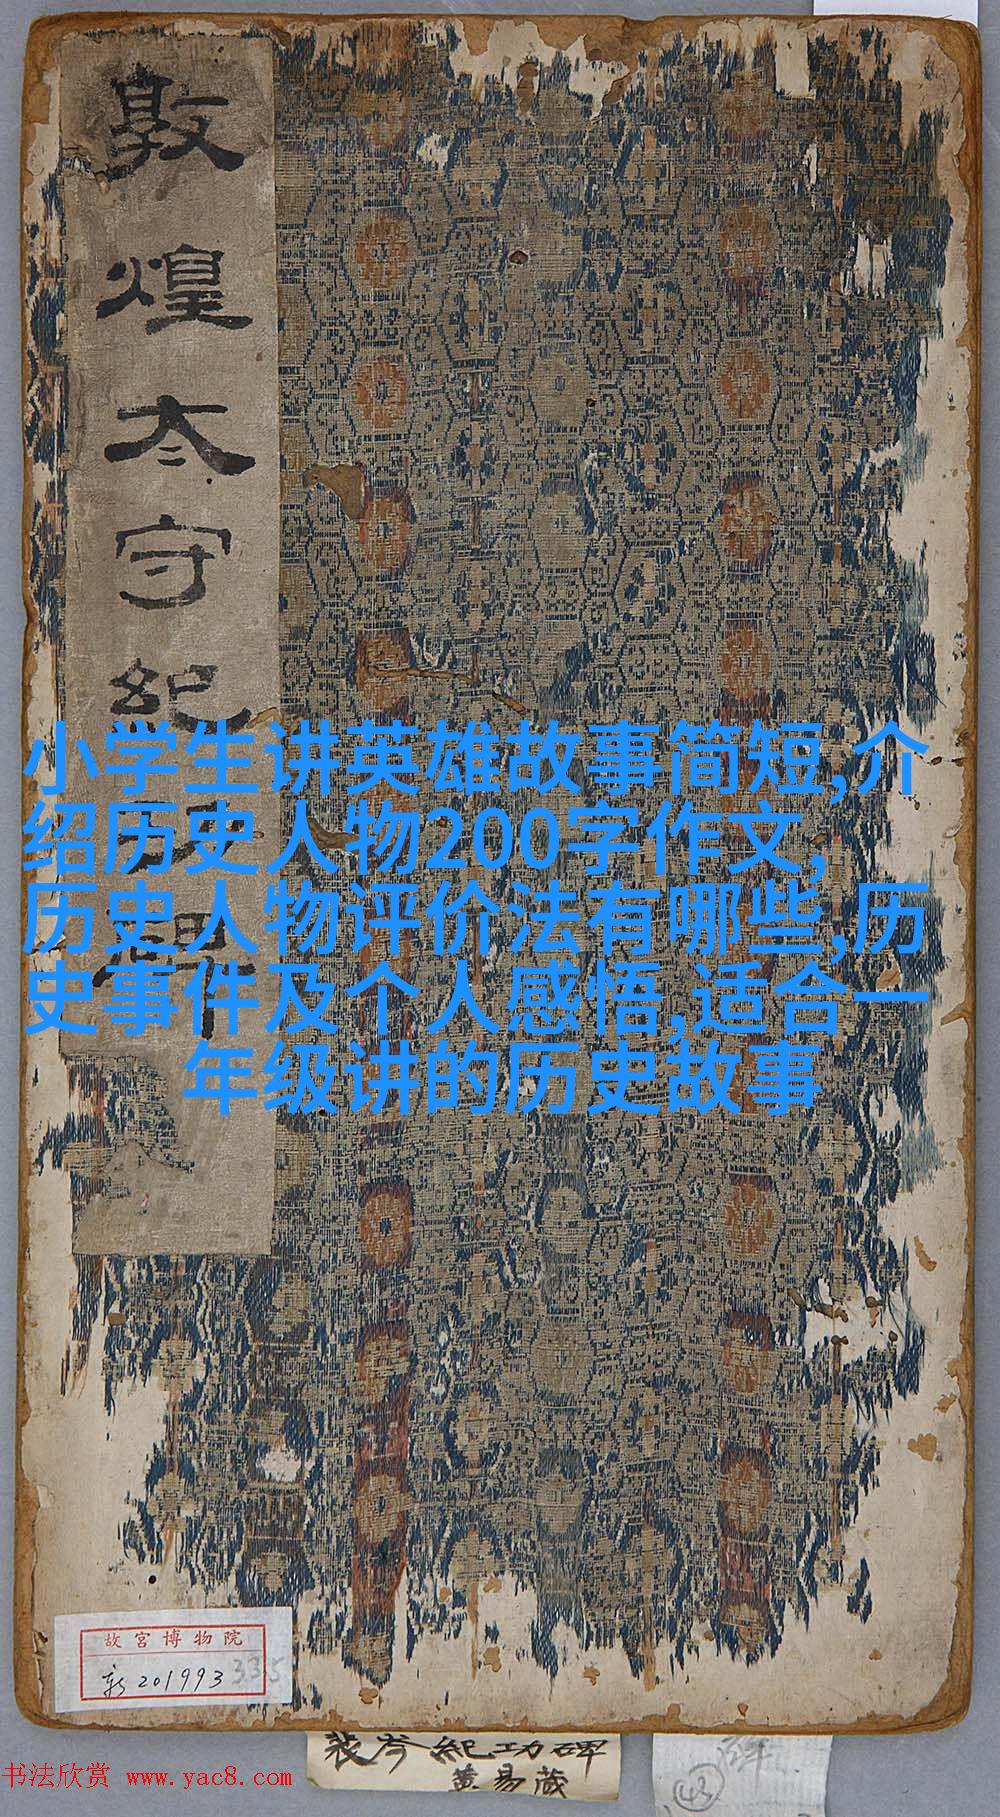 敦煌太守紀
小学生讲英雄故事简短,介
绍历史人物200字作文,
历史人物评价法有哪些,历
史事件及个人感悟,适合一
年级讲的历史故事
故宮博物院
新201993 335
裴岑紀功碑
黄易藏
43
书法欣赏 www.yac8.com